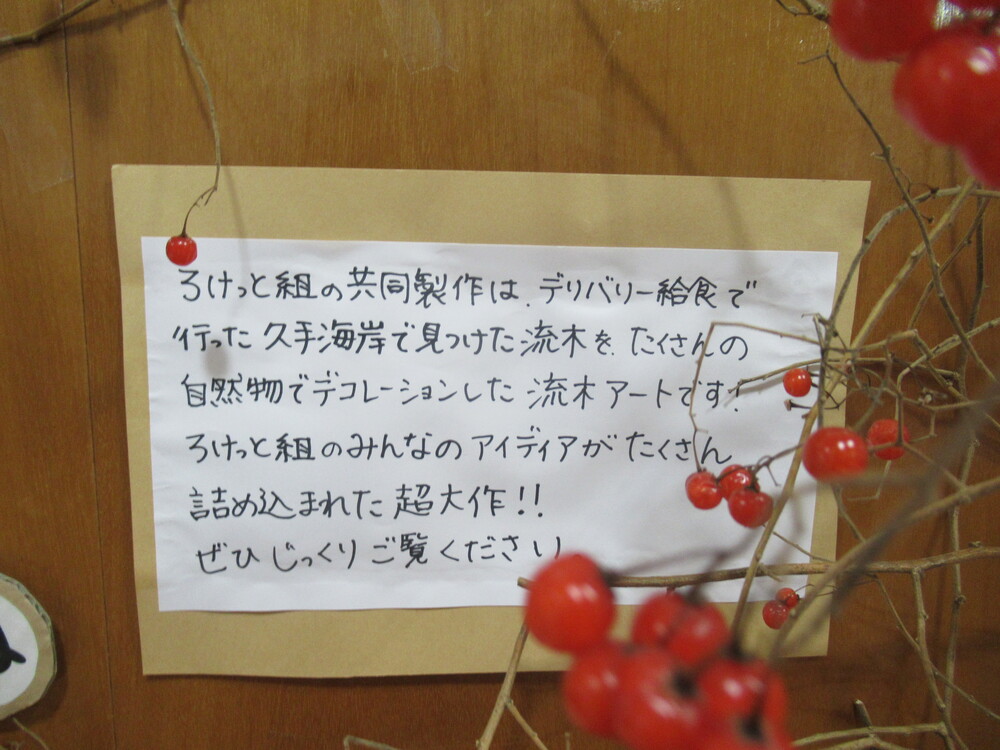 ろけっと組の共同製作は、デリバリー給食で
行った久手海岸で見つけた流木を、たくさんの
自然物でデコレーションした流木アートです!
ろけっと組のみんなのアイディアがたくさん
詰め込まれた超大作!!
ぜひじっくりご覧ください